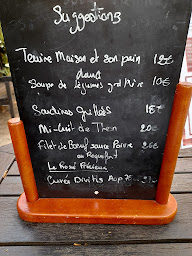 Suggestions
Terrine Maison et son pain 12€
Soupe de légumes grd Mère 10€
Sardines Grillées 18€
Mi-Cuit de Thon 20€
Filet de Boeuf sauce Poivre 26€
ou Roquefort
Le Rosé
Cuvée Divitis Aop 75